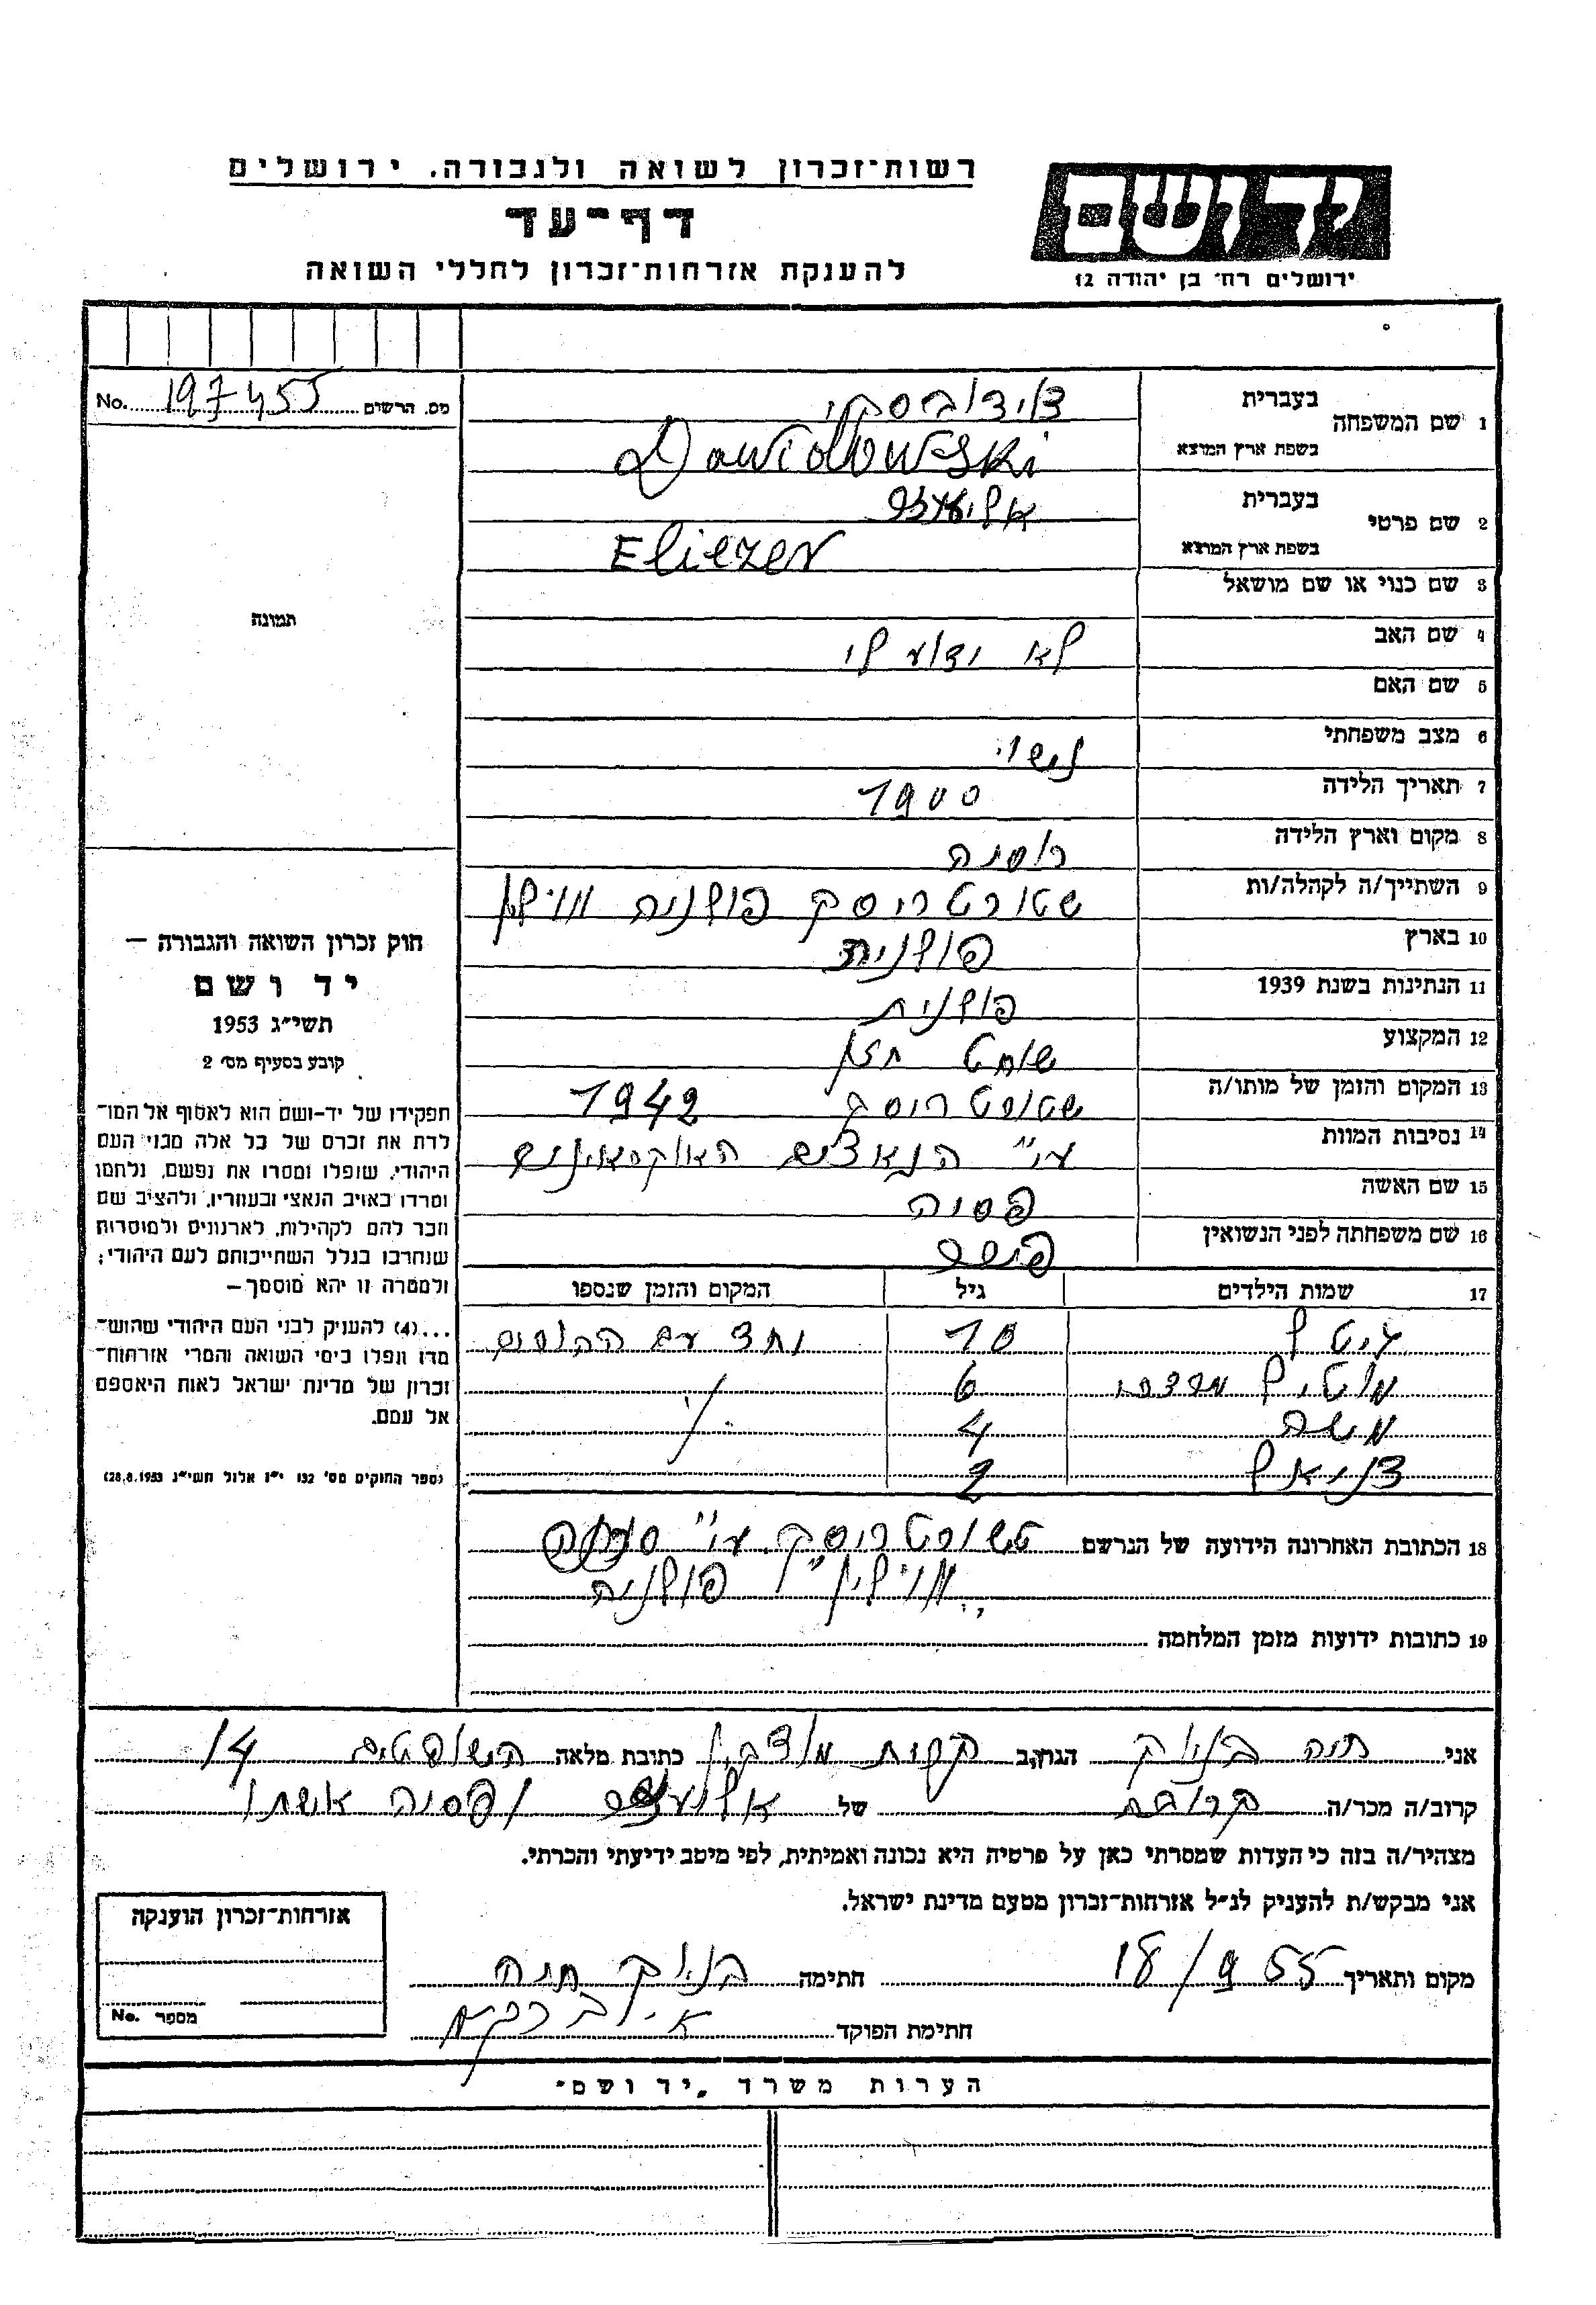 רשות־זכרון לשואה ולגבורה. ירושלים
דף־עד
להענקת אזרחות־זכרון לחללי השואה
יד ושם
ירושלים רח׳ בן יהודה 12
מס. הרשום 197455 No.
תמונה
1 שם המשפחה בעברית דוידובסקי
בשפת ארץ המוצא Dawidowski
2 שם פרטי בעברית אליעזר
בשפת ארץ המוצא Eliezer
3 שם כנוי או שם מושאל
4 שם האב לא ידוע לי
5 שם האם
6 מצב משפחתי נשוי
7 תאריך הלידה 1900
8 מקום וארץ הלידה רוסיה
9 השתייך/ה לקהלה/ות פולניה ווילין
10 בארץ פולנית
11 הנתינות בשנת 1939 פולנית
12 המקצוע שוחט חזן
13 המקום והזמן של מותו/ה 1942
14 נסיבות המוות ע״י הנאצים האוקראינים
15 שם האשה פסיה
16 שם משפחתה לפני הנשואין פישר
17 שמות הילדים גיל המקום והזמן שנספו
גיטל 10 יחד עם ההורים
מוטיל מרדכי 6 ״
משה 4
דניאל 2
18 הכתובת האחרונה הידועה של הנרשם ע״י
״ווילין״ פולניה
19 כתובות ידועות מזמן המלחמה
חוק זכרון השואה והגבורה —
יד ושם
תשי״ג 1953
קובע בסעיף מס׳ 2
תפקידו של יד-ושם הוא לאסוף אל המו־
לדת את זכרם של כל אלה מבני העם
היהודי, שנפלו ומסרו את נפשם, נלחמו
ומרדו באויב הנאצי ובעוזריו, ולהציב שם
וזכר להם לקהילות, לארגונים ולמוסדות
שנחרבו בגלל השתייכותם לעם היהודי;
ולמטרה זו יהא מוסמך —
...(4) להעניק לבני העם היהודי שהוש־
מדו ונפלו בימי השואה והמרי אזרחות־
זכרון של מדינת ישראל לאות היאספם
אל עמם.
(ספר החוקים מס׳ 132 י״ז אלול תשי״ג 28.8.1953)
אני חיה בניוק הגר/ה ב קרית מוצקין כתובת מלאה השופטים 14
קרוב/ה מכר/ה קרובה של אליעזר ופסיה אשתו
מצהיר/ה בזה כי העדות שמסרתי כאן על פרטיה היא נכונה ואמיתית, לפי מיטב ידיעתי והכרתי.
אני מבקש/ת להעניק לנ״ל אזרחות־זכרון מטעם מדינת ישראל.
מקום ותאריך 18/9 55 חתימה בניוק חיה
חתימת הפוקד
אזרחות־זכרון הוענקה
מספר No.
הערות משרד „יד ושם״